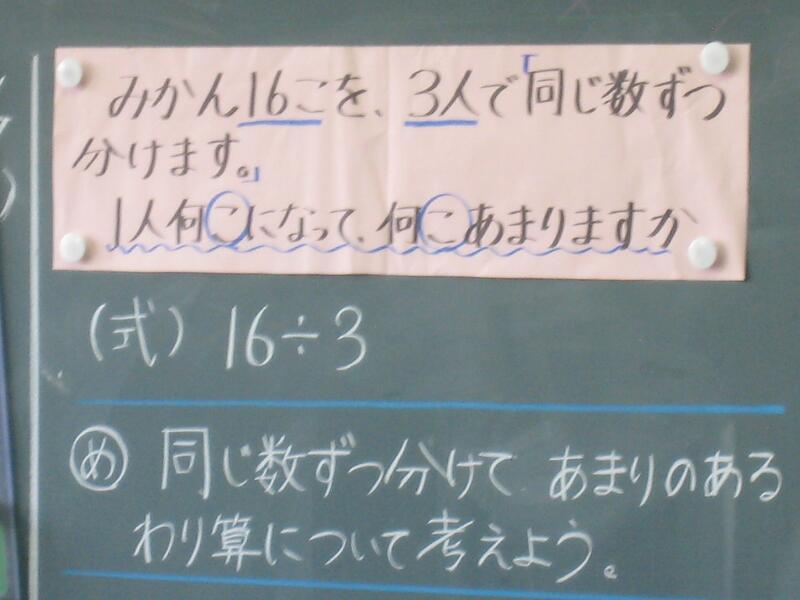 みかん16こを、3人で「同じ数ずつ
分けます。」
1人何こになって、何こあまりますか
(式) 16÷3
め 同じ数ずつ分けて あまりのある
わり算について考えよう。